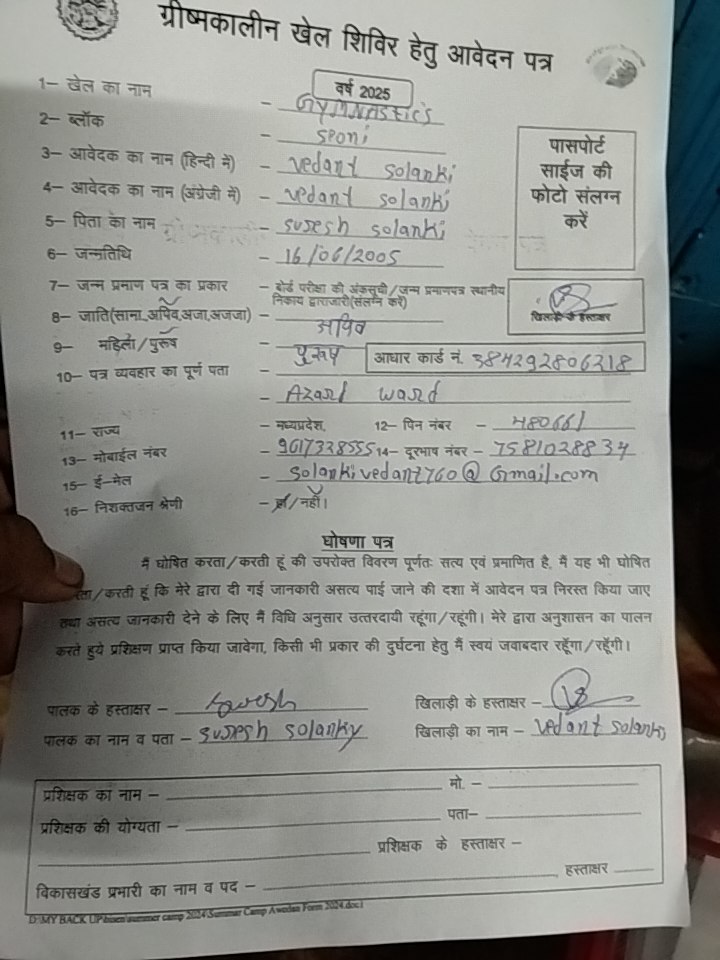 ग्रीष्मकालीन खेल शिविर हेतु आवेदन पत्र
वर्ष 2025
1– खेल का नाम – GYMNASTICS
2– ब्लॉक – seoni
3– आवेदक का नाम (हिन्दी में) – vedant solanki
4– आवेदक का नाम (अंग्रेजी में) – vedant solanki
5– पिता का नाम – suresh solanki
6– जन्मतिथि – 16/06/2005
पासपोर्ट
साईज की
फोटो संलग्न
करें
7– जन्म प्रमाण पत्र का प्रकार – बोर्ड परीक्षा की अंकसूची/जन्म प्रमाणपत्र स्थानीय
निकाय द्वाराजारी(संलग्न करें)
खिलाड़ी के हस्ताक्षर
8– जाति(सामा,अपिव,अजा,अजजा) – अपिव
9– महिला/पुरुष – पुरूष आधार कार्ड नं. 384292806218
10– पत्र व्यवहार का पूर्ण पता –
– Azard ward
11– राज्य – मध्यप्रदेश, 12– पिन नंबर – 480661
13– मोबाईल नंबर – 9617328555 14– दूरभाष नंबर – 7581028834
15– ई–मेल – solankivedant760@Gmail.com
16– निशक्तजन श्रेणी – हां/नहीं।
घोषणा पत्र
मैं घोषित करता/करती हूं की उपरोक्त विवरण पूर्णतः सत्य एवं प्रमाणित है, मैं यह भी घोषित
/करती हूं कि मेरे द्वारा दी गई जानकारी असत्य पाई जाने की दशा में आवेदन पत्र निरस्त किया जाए
तथा असत्य जानकारी देने के लिए मैं विधि अनुसार उत्तरदायी रहूंगा/रहूंगी। मेरे द्वारा अनुशासन का पालन
करते हुये प्रशिक्षण प्राप्त किया जावेगा, किसी भी प्रकार की दुर्घटना हेतु मैं स्वयं जवाबदार रहूँगा/रहूँगी।
पालक के हस्ताक्षर – Suresh खिलाड़ी के हस्ताक्षर –
पालक का नाम व पता – suresh solanky खिलाड़ी का नाम – vedant solanki
प्रशिक्षक का नाम – मो. –
प्रशिक्षक की योग्यता – पता–
प्रशिक्षक के हस्ताक्षर –
हस्ताक्षर
विकासखंड प्रभारी का नाम व पद –
D:\MY BACK UP\hiren\summer camp 2024\Summer Camp Awedan Form 2024.doc1